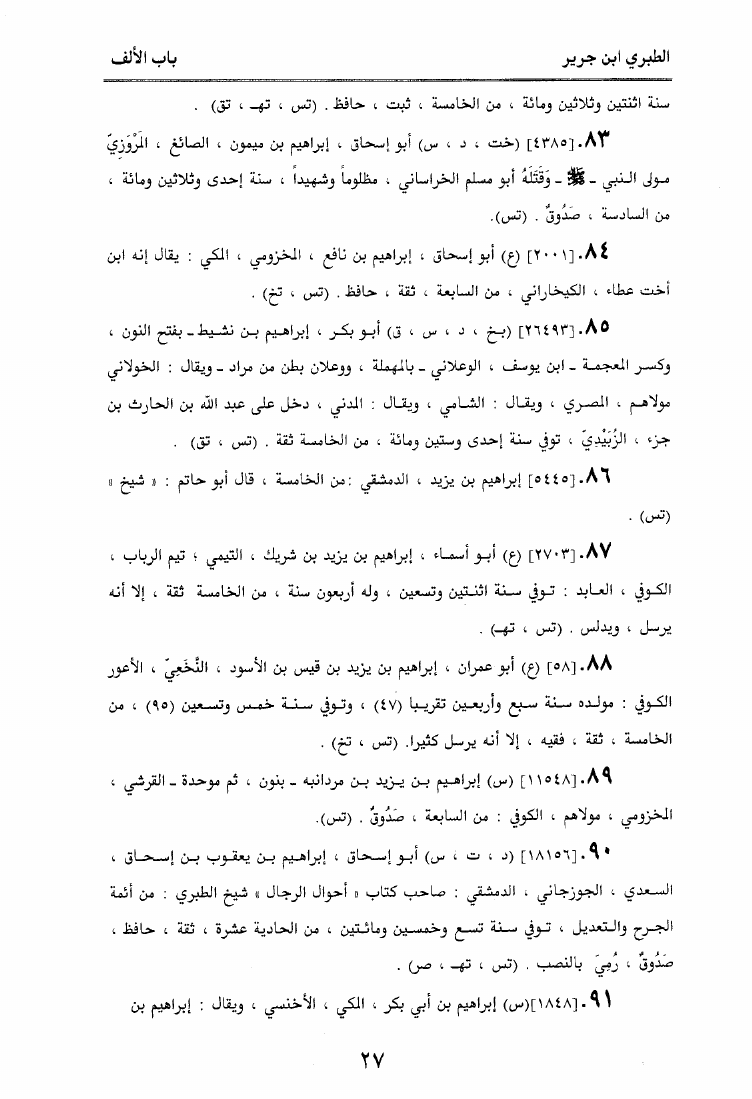 الطبري ابن جرير
باب الألف
سنة اثنتين وثلاثين ومائة ، من الخامسة ، ثبت ، حافظ . (تس ، تهـ ، تق) .
٨٣.[٤٣٨٥] (خت ، د ، س) أبو إسحاق ، إبراهيم بن ميمون ، الصائغ ، المَرْوَزِيّ
مولى النبي ـ ﷺ ـ وَقَتَلَهُ أبو مسلم الخراساني ، مظلوماً وشهيداً ، سنة إحدى وثلاثين ومائة ،
من السادسة ، صَدُوقٌ . (تس).
٨٤.[٢٠٠١] (ع) أبو إسحاق ، إبراهيم بن نافع ، المخزومي ، المكي : يقال إنه ابن
أخت عطاء ، الكيخاراني ، من السابعة ، ثقة ، حافظ . (تس ، تخ) .
٨٥.[٢٦٤٩٣] (بخ ، د ، س ، ق) أبو بكر ، إبراهيم بن نشيط ـ بفتح النون ،
وكسر المعجمة ـ ابن يوسف ، الوعلاني ـ بالمهملة ، ووعلان بطن من مراد ـ ويقال : الخولاني
مولاهم ، المصري ، ويقال : الشامي ، ويقال : المدني ، دخل على عبد الله بن الحارث بن
جزء ، الزُبَيْدِيّ ، توفي سنة إحدى وستين ومائة ، من الخامسة ثقة . (تس ، تق) .
٨٦.[٥٤٤٥] إبراهيم بن يزيد ، الدمشقي :من الخامسة ، قال أبو حاتم : « شيخ »
(تس) .
٨٧.[٢٧٠٣] (ع) أبو أسماء ، إبراهيم بن يزيد بن شريك ، التيمي ؛ تيم الرباب ،
الكوفي ، العابد : توفي سنة اثنتين وتسعين ، وله أربعون سنة ، من الخامسة ثقة ، إلا أنه
يرسل ، ويدلس . (تس ، تهـ) .
٨٨.[٥٨] (ع) أبو عمران ، إبراهيم بن يزيد بن قيس بن الأسود ، النَّخَعِيّ ، الأعور
الكوفي : مولده سنة سبع وأربعين تقريبا (٤٧) ، وتوفي سنة خمس وتسعين (٩٥) ، من
الخامسة ، ثقة ، فقيه ، إلا أنه يرسل كثيرا. (تس ، تخ) .
٨٩.[١١٥٤٨] (س) إبراهيم بن يزيد بن مردانبه ـ بنون ، ثم موحدة ـ القرشي ،
المخزومي ، مولاهم ، الكوفي : من السابعة ، صَدُوقٌ . (تس).
٩٠.[١٨١٥٦] (د ، ت ، س) أبو إسحاق ، إبراهيم بن يعقوب بن إسحاق ،
السعدي ، الجوزجاني ، الدمشقي : صاحب كتاب « أحوال الرجال » شيخ الطبري : من أئمة
الجرح والتعديل ، توفي سنة تسع وخمسين ومائتين ، من الحادية عشرة ، ثقة ، حافظ ،
صَدُوقٌ ، رُمِيَ بالنصب . (تس ، تهـ ، صر) .
٩١.[١٨٤٨](س) إبراهيم بن أبي بكر ، المكي ، الأخنسي ، ويقال : إبراهيم بن
٢٧